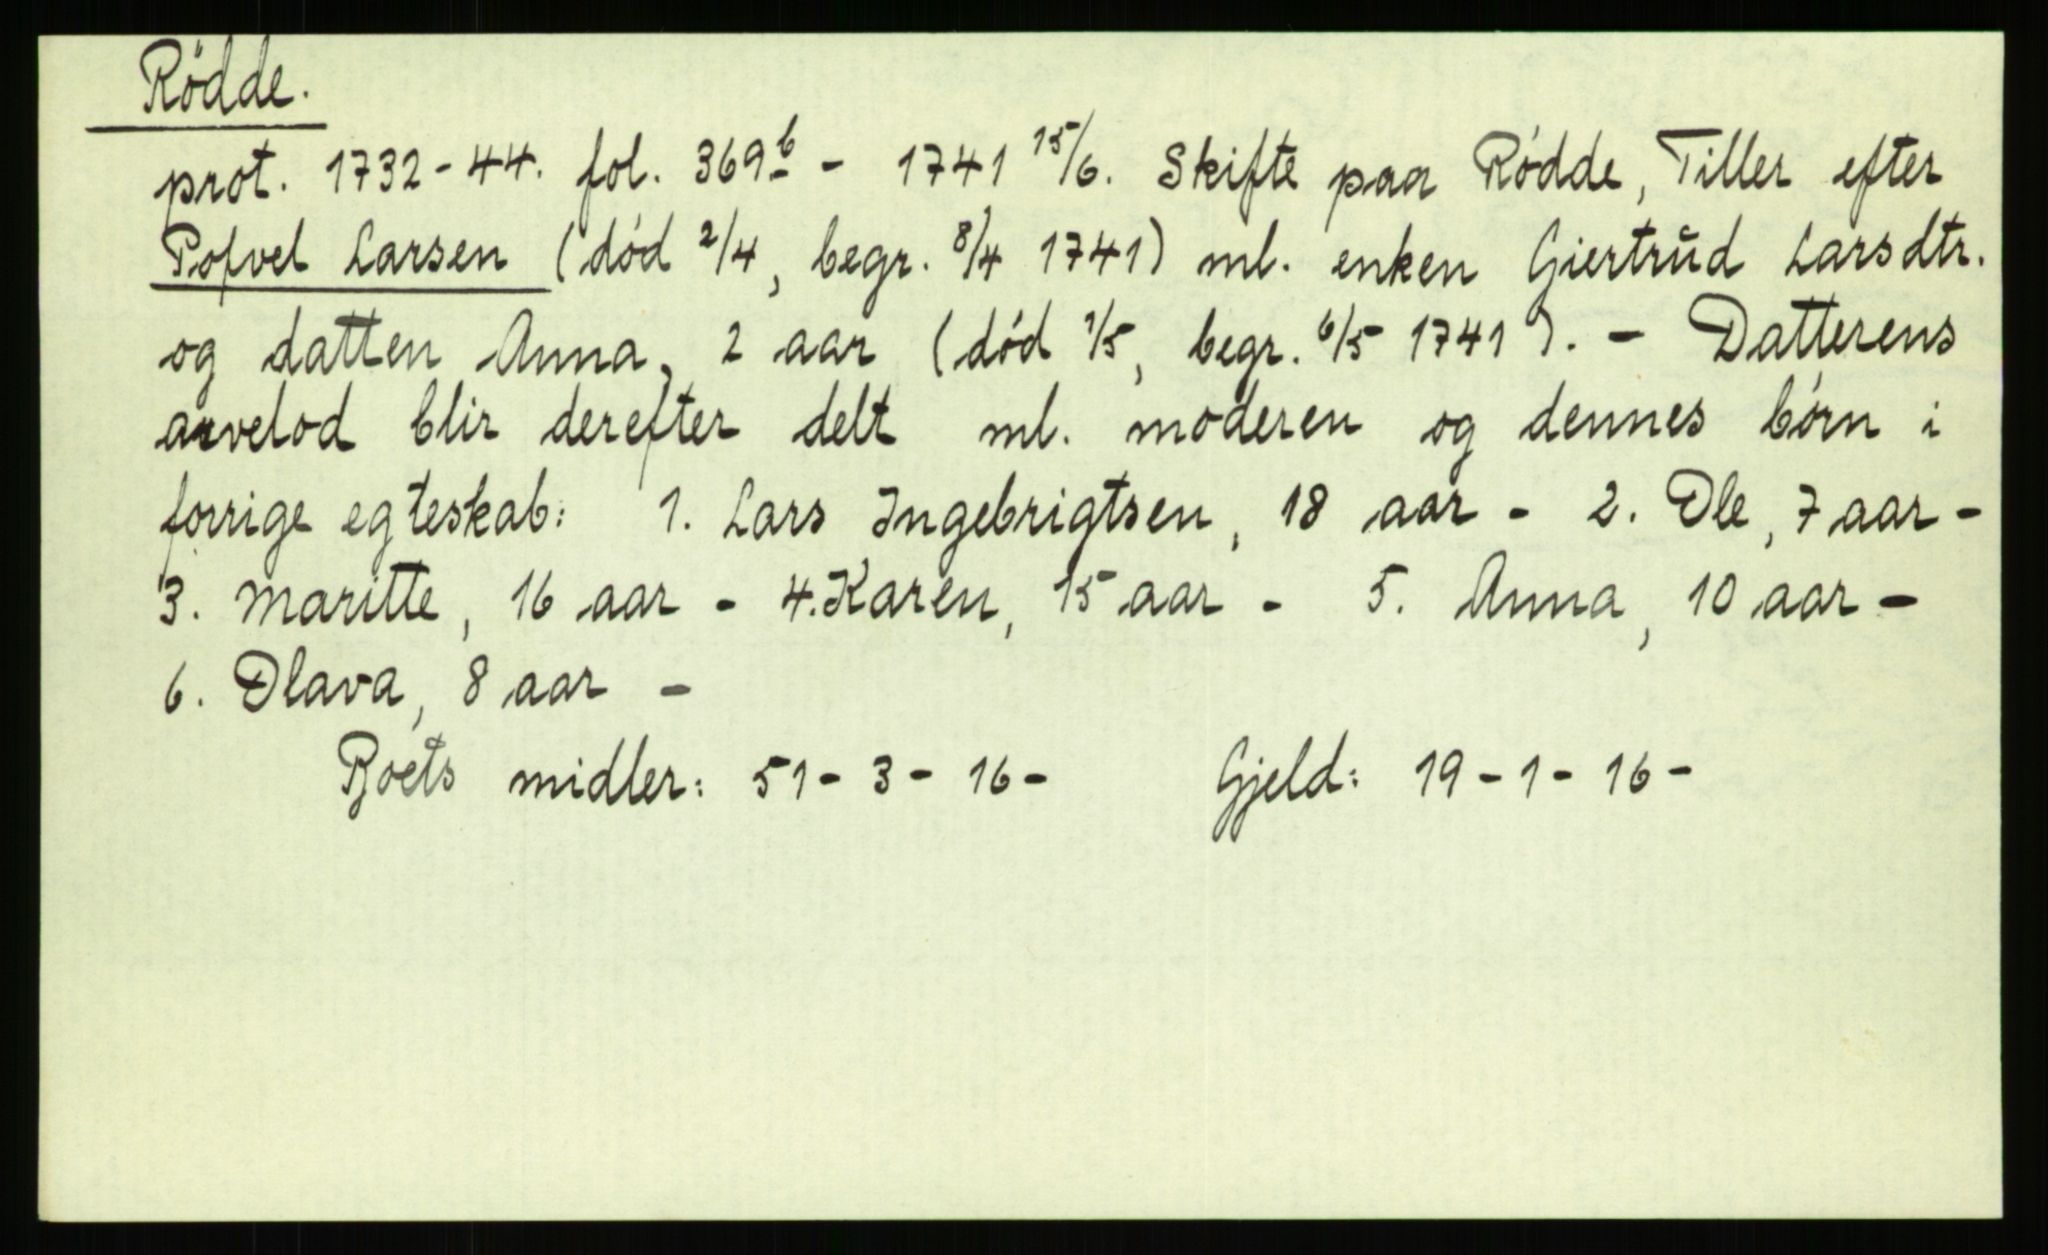 Rödde.
prot. 1732-44. fol. 369b - 1741 15/6. Skifte paa Rødde, Tiller efter
Pofvel Larsen (død 2/4, begr. 8/4 1741) ml. enken Giertrŭd Larsdtr.
og datten Anna, 2 aar (død 1/5, begr. 6/5 1741). - Datterens
arvelod blir derefter delt ml. moderen og dennes børn i
forrige egteskab: 1. Lars Ingebrigtsen, 18 aar - 2. Ole, 7 aar -
3. Maritte, 16 aar - 4. Karen, 15 aar - 5. Anna, 10 aar -
6. Olava, 8 aar -
Boets midler: 51-3-16- Gjeld: 19-1-16-